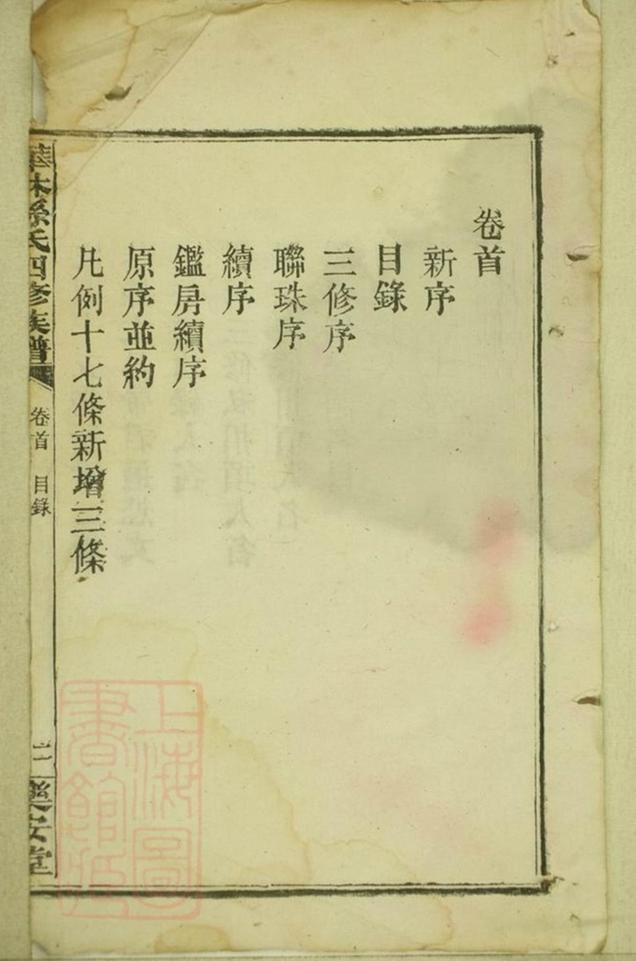 卷首
新序
目錄
三修序
聯珠序
續序
鑑房續序
原序並約
凡例十七條新增三條
華林孫氏四修族譜
卷首 目錄
樂安堂
上海圖書館藏